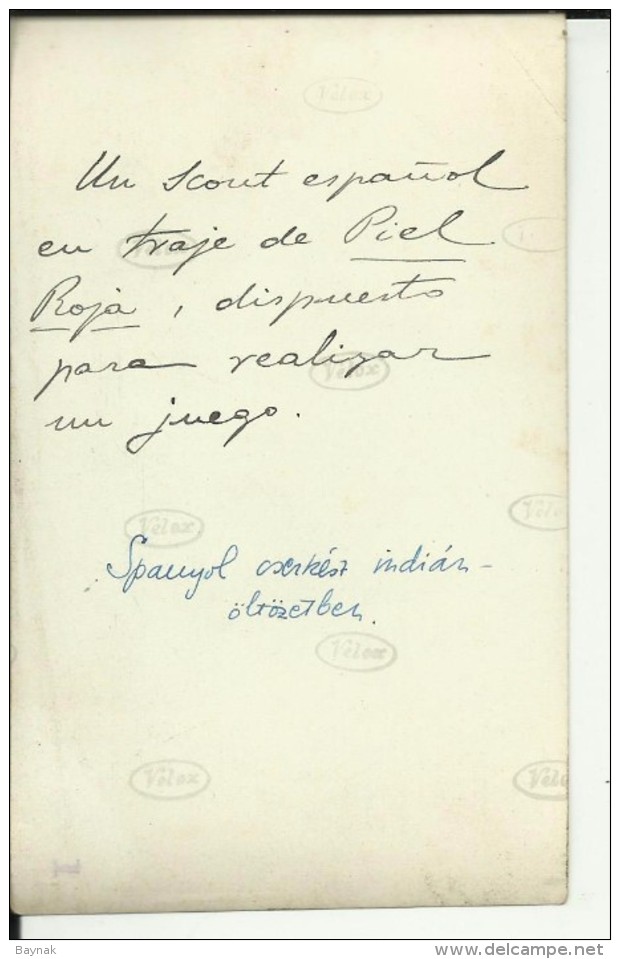 Velox
Un scout español
en traje de Piel
Velox
Roja, dispuesto
para realizar
Velox
un juego.
Velox
Velox
Spanyol cserkész indián-
öltözetben.
Velox
Velox
Velox
1
Baynak
www.delcampe.net